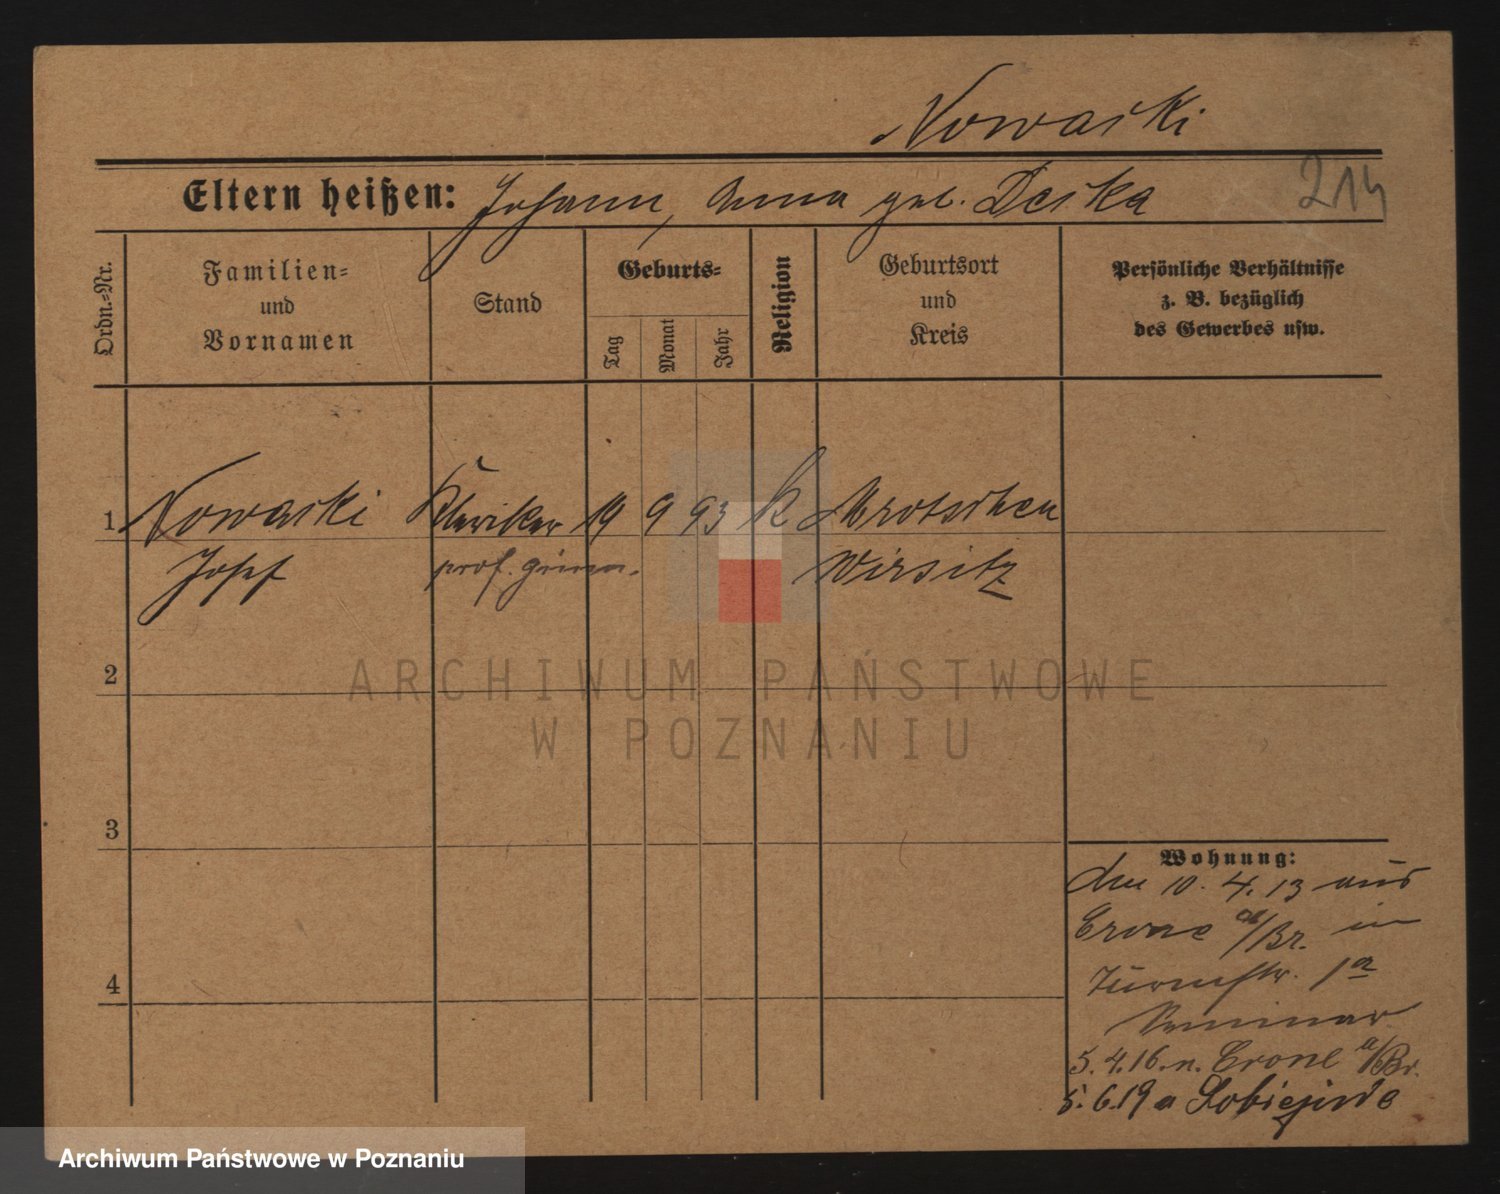 Nowacki
Eltern heißen: Johann, Anna geb. Deska
214
Ordn.-Nr.
Familien-
und
Vornamen
Stand
Geburts-
Tag
Monat
Jahr
Religion
Geburtsort
und
Kreis
Persönliche Verhältnisse
z. B. bezüglich
des Gewerbes usw.
1 Nowacki Kleriker 19 9 93 k Mrotschen
Josef prof. gimn. Wirsitz
2
3
4
Wohnung:
den 10. 4. 13 aus
Crone a/Br. in
Turmstr. 1a
Seminar
5. 4. 16. n. Crone a/Br.
5. 6. 19 a
ARCHIWUM PAŃSTWOWE
W POZNANIU
Archiwum Państwowe w Poznaniu